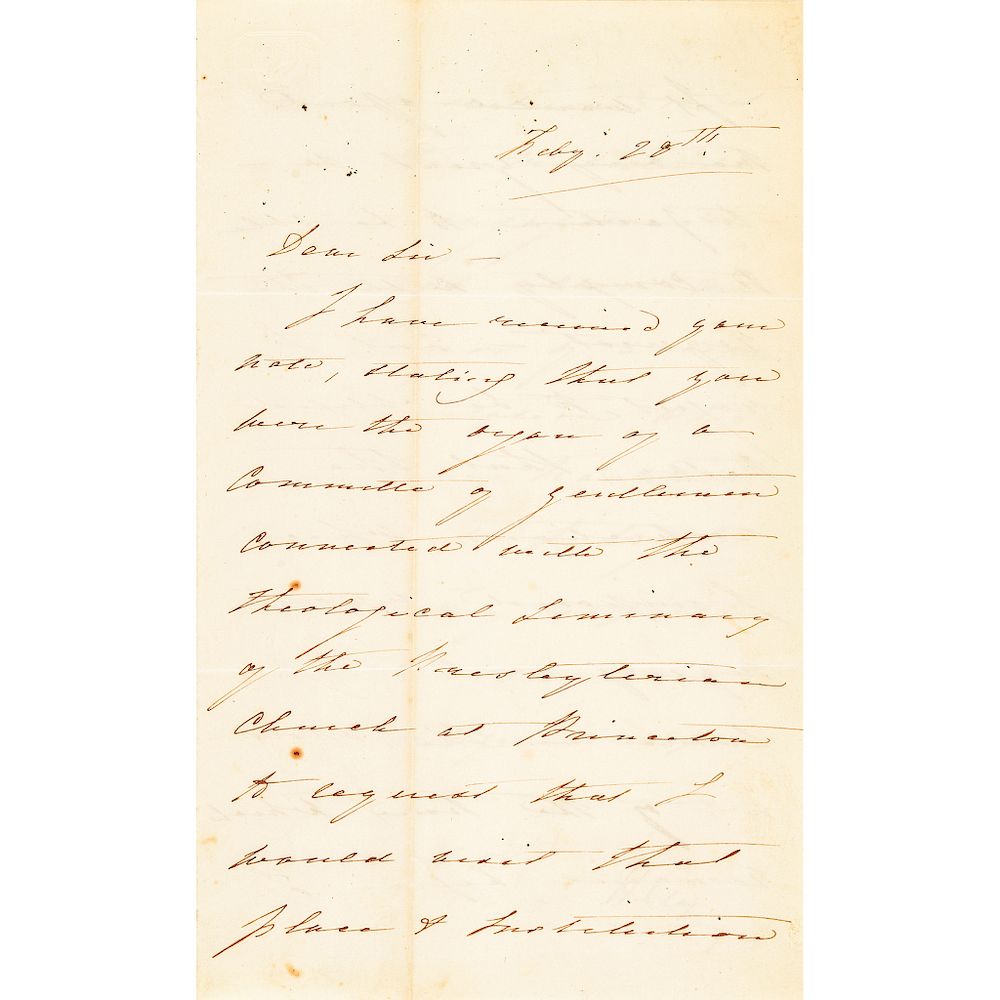 Feby. 28th.
Dear Sir —
I have received your
note, stating that you
were the organ of a
Committe of gentlemen
connected with the
Theological Seminary
of the Presbyterian
Church at Princeton
to request that I
would visit that
place & Institution